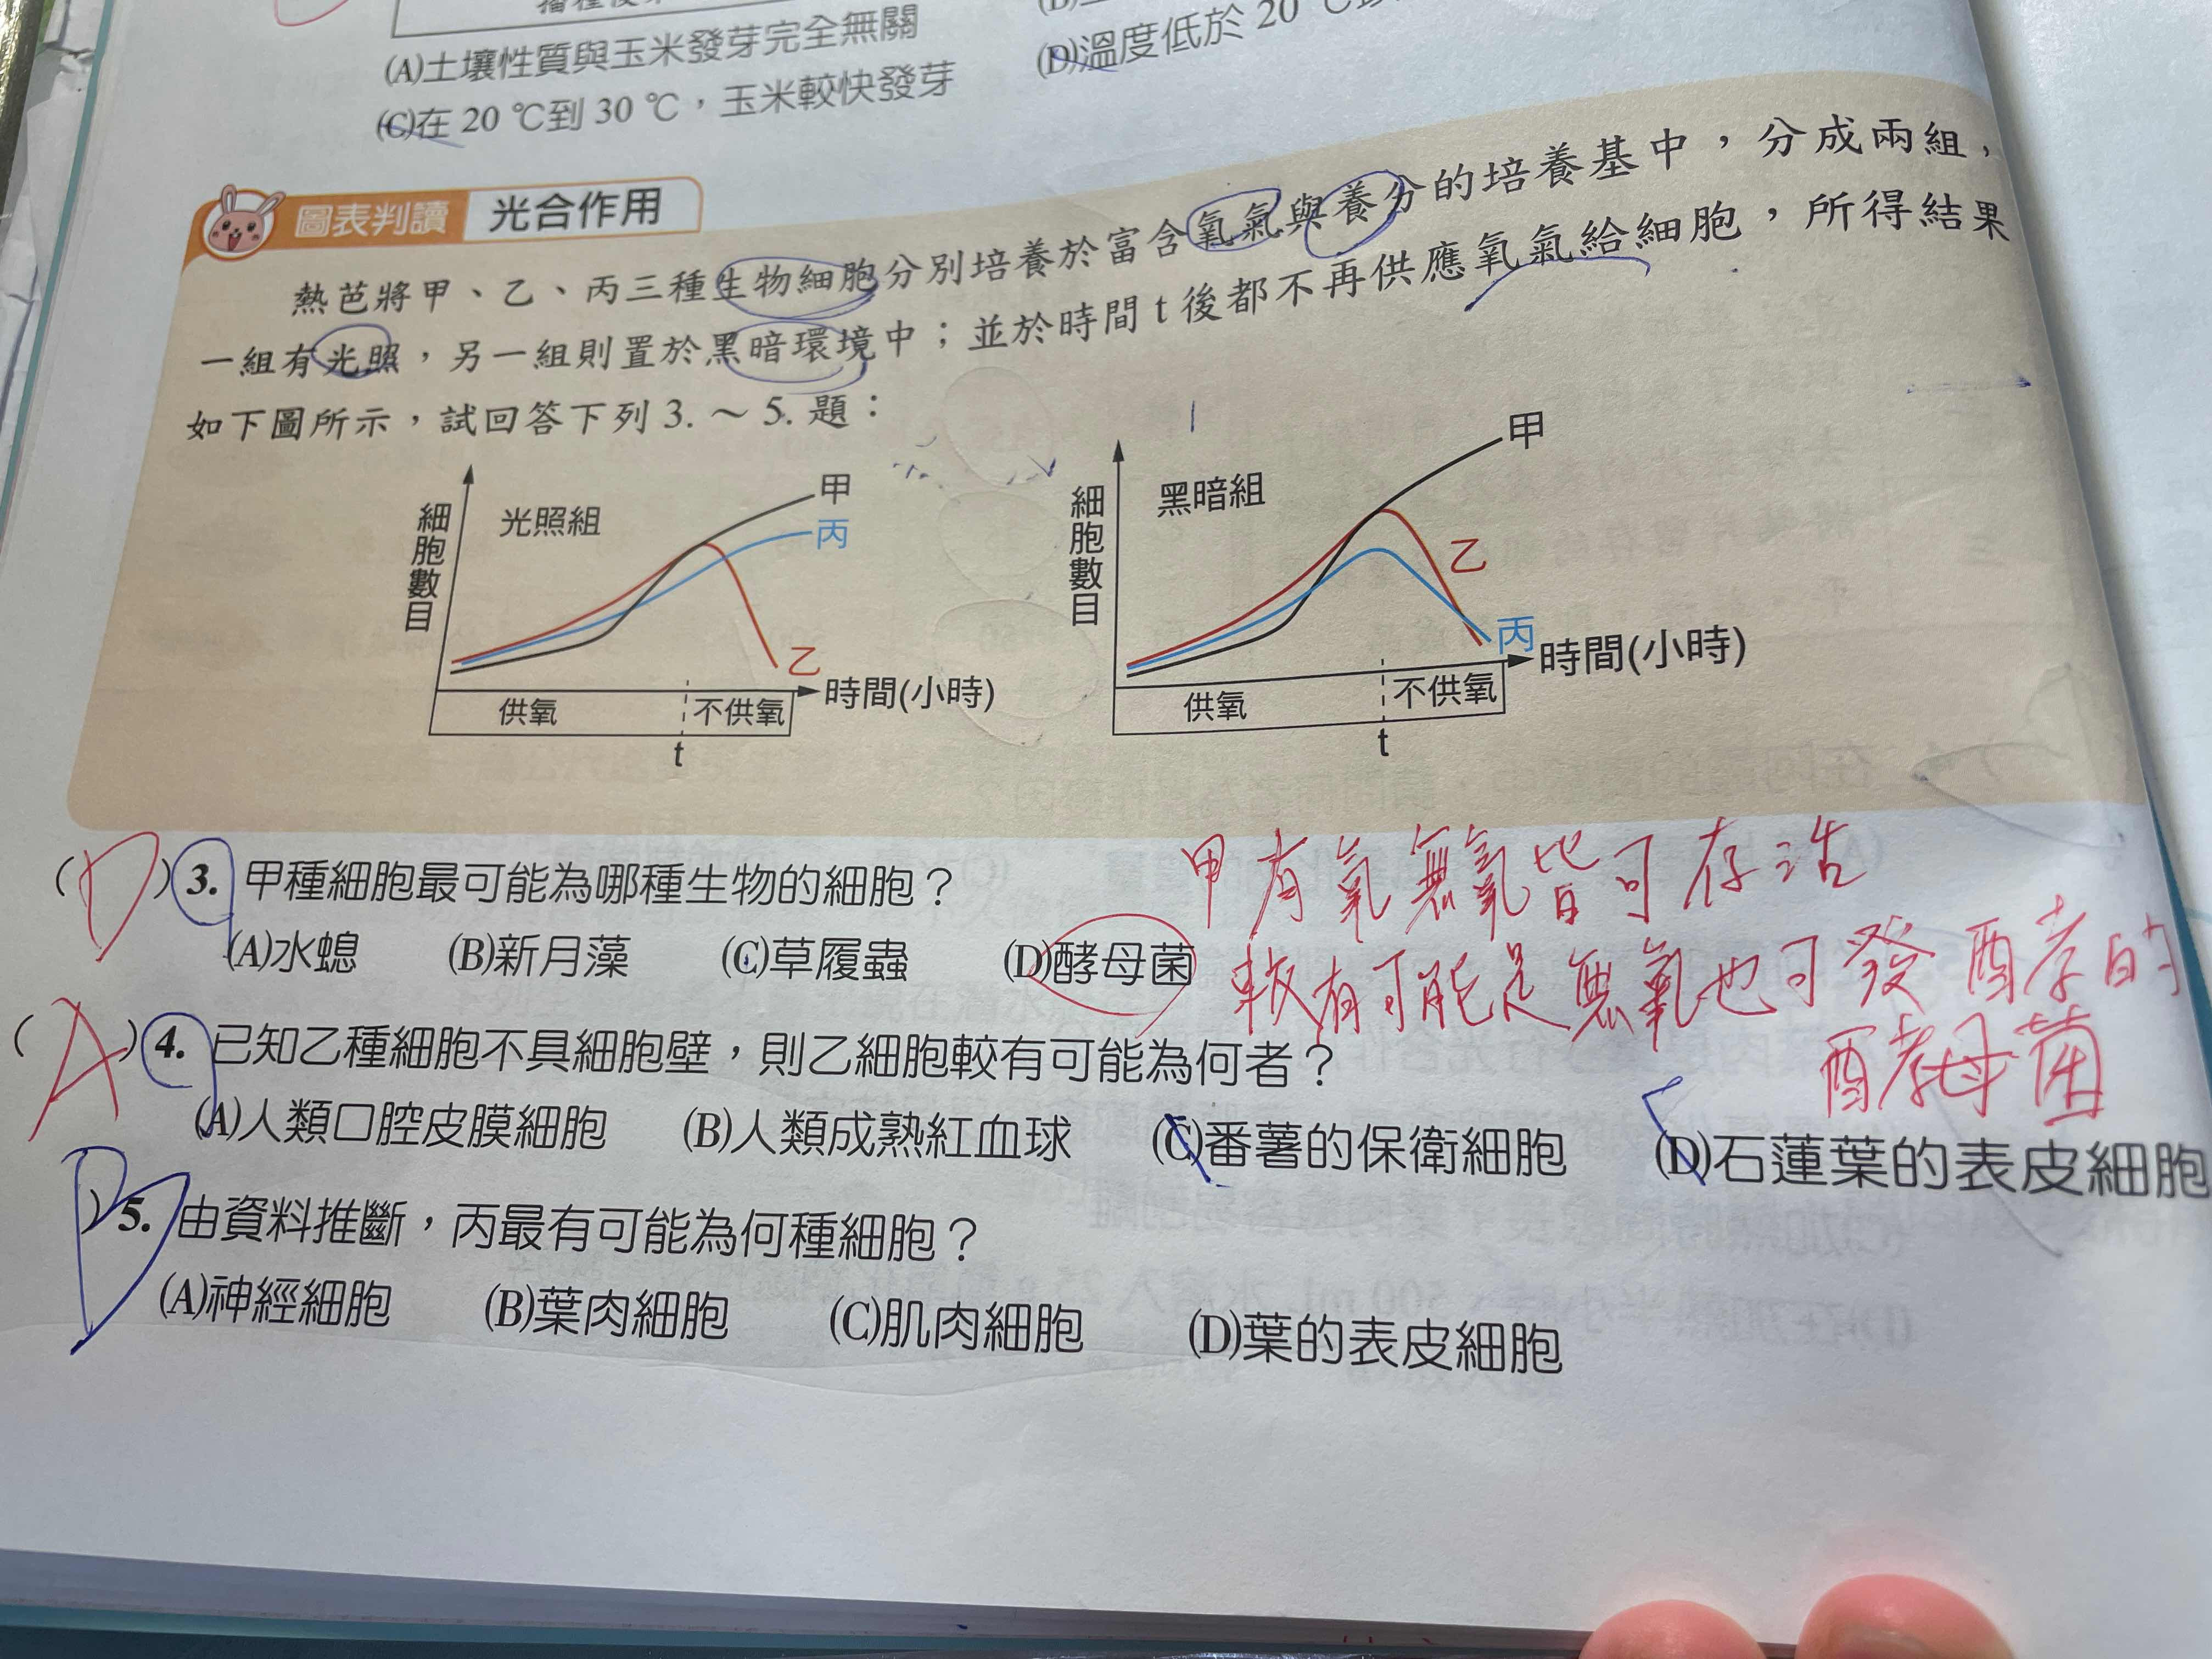 (A)土壤性質與玉米發芽完全無關
(D)溫度低於 20 ℃
(C)在 20 ℃到 30 ℃，玉米較快發芽
圖表判讀 光合作用
熱芭將甲、乙、丙三種生物細胞分別培養於富含氧氣與養分的培養基中，分成兩組，
一組有光照，另一組則置於黑暗環境中；並於時間 t 後都不再供應氧氣給細胞，所得結果
如下圖所示，試回答下列 3. ～ 5. 題：
細胞數目
光照組
甲
丙
乙
時間(小時)
供氧
不供氧
t
細胞數目
黑暗組
甲
乙
丙
時間(小時)
供氧
不供氧
t
(D) 3. 甲種細胞最可能為哪種生物的細胞？
(A)水螅 (B)新月藻 (C)草履蟲 (D)酵母菌
甲有氧無氧皆可存活
較有可能是無氧也可發酵的
酵母菌
(A) 4. 已知乙種細胞不具細胞壁，則乙細胞較有可能為何者？
(A)人類口腔皮膜細胞 (B)人類成熟紅血球 (C)番薯的保衛細胞 (D)石蓮葉的表皮細胞
B) 5. 由資料推斷，丙最有可能為何種細胞？
(A)神經細胞 (B)葉肉細胞 (C)肌肉細胞 (D)葉的表皮細胞